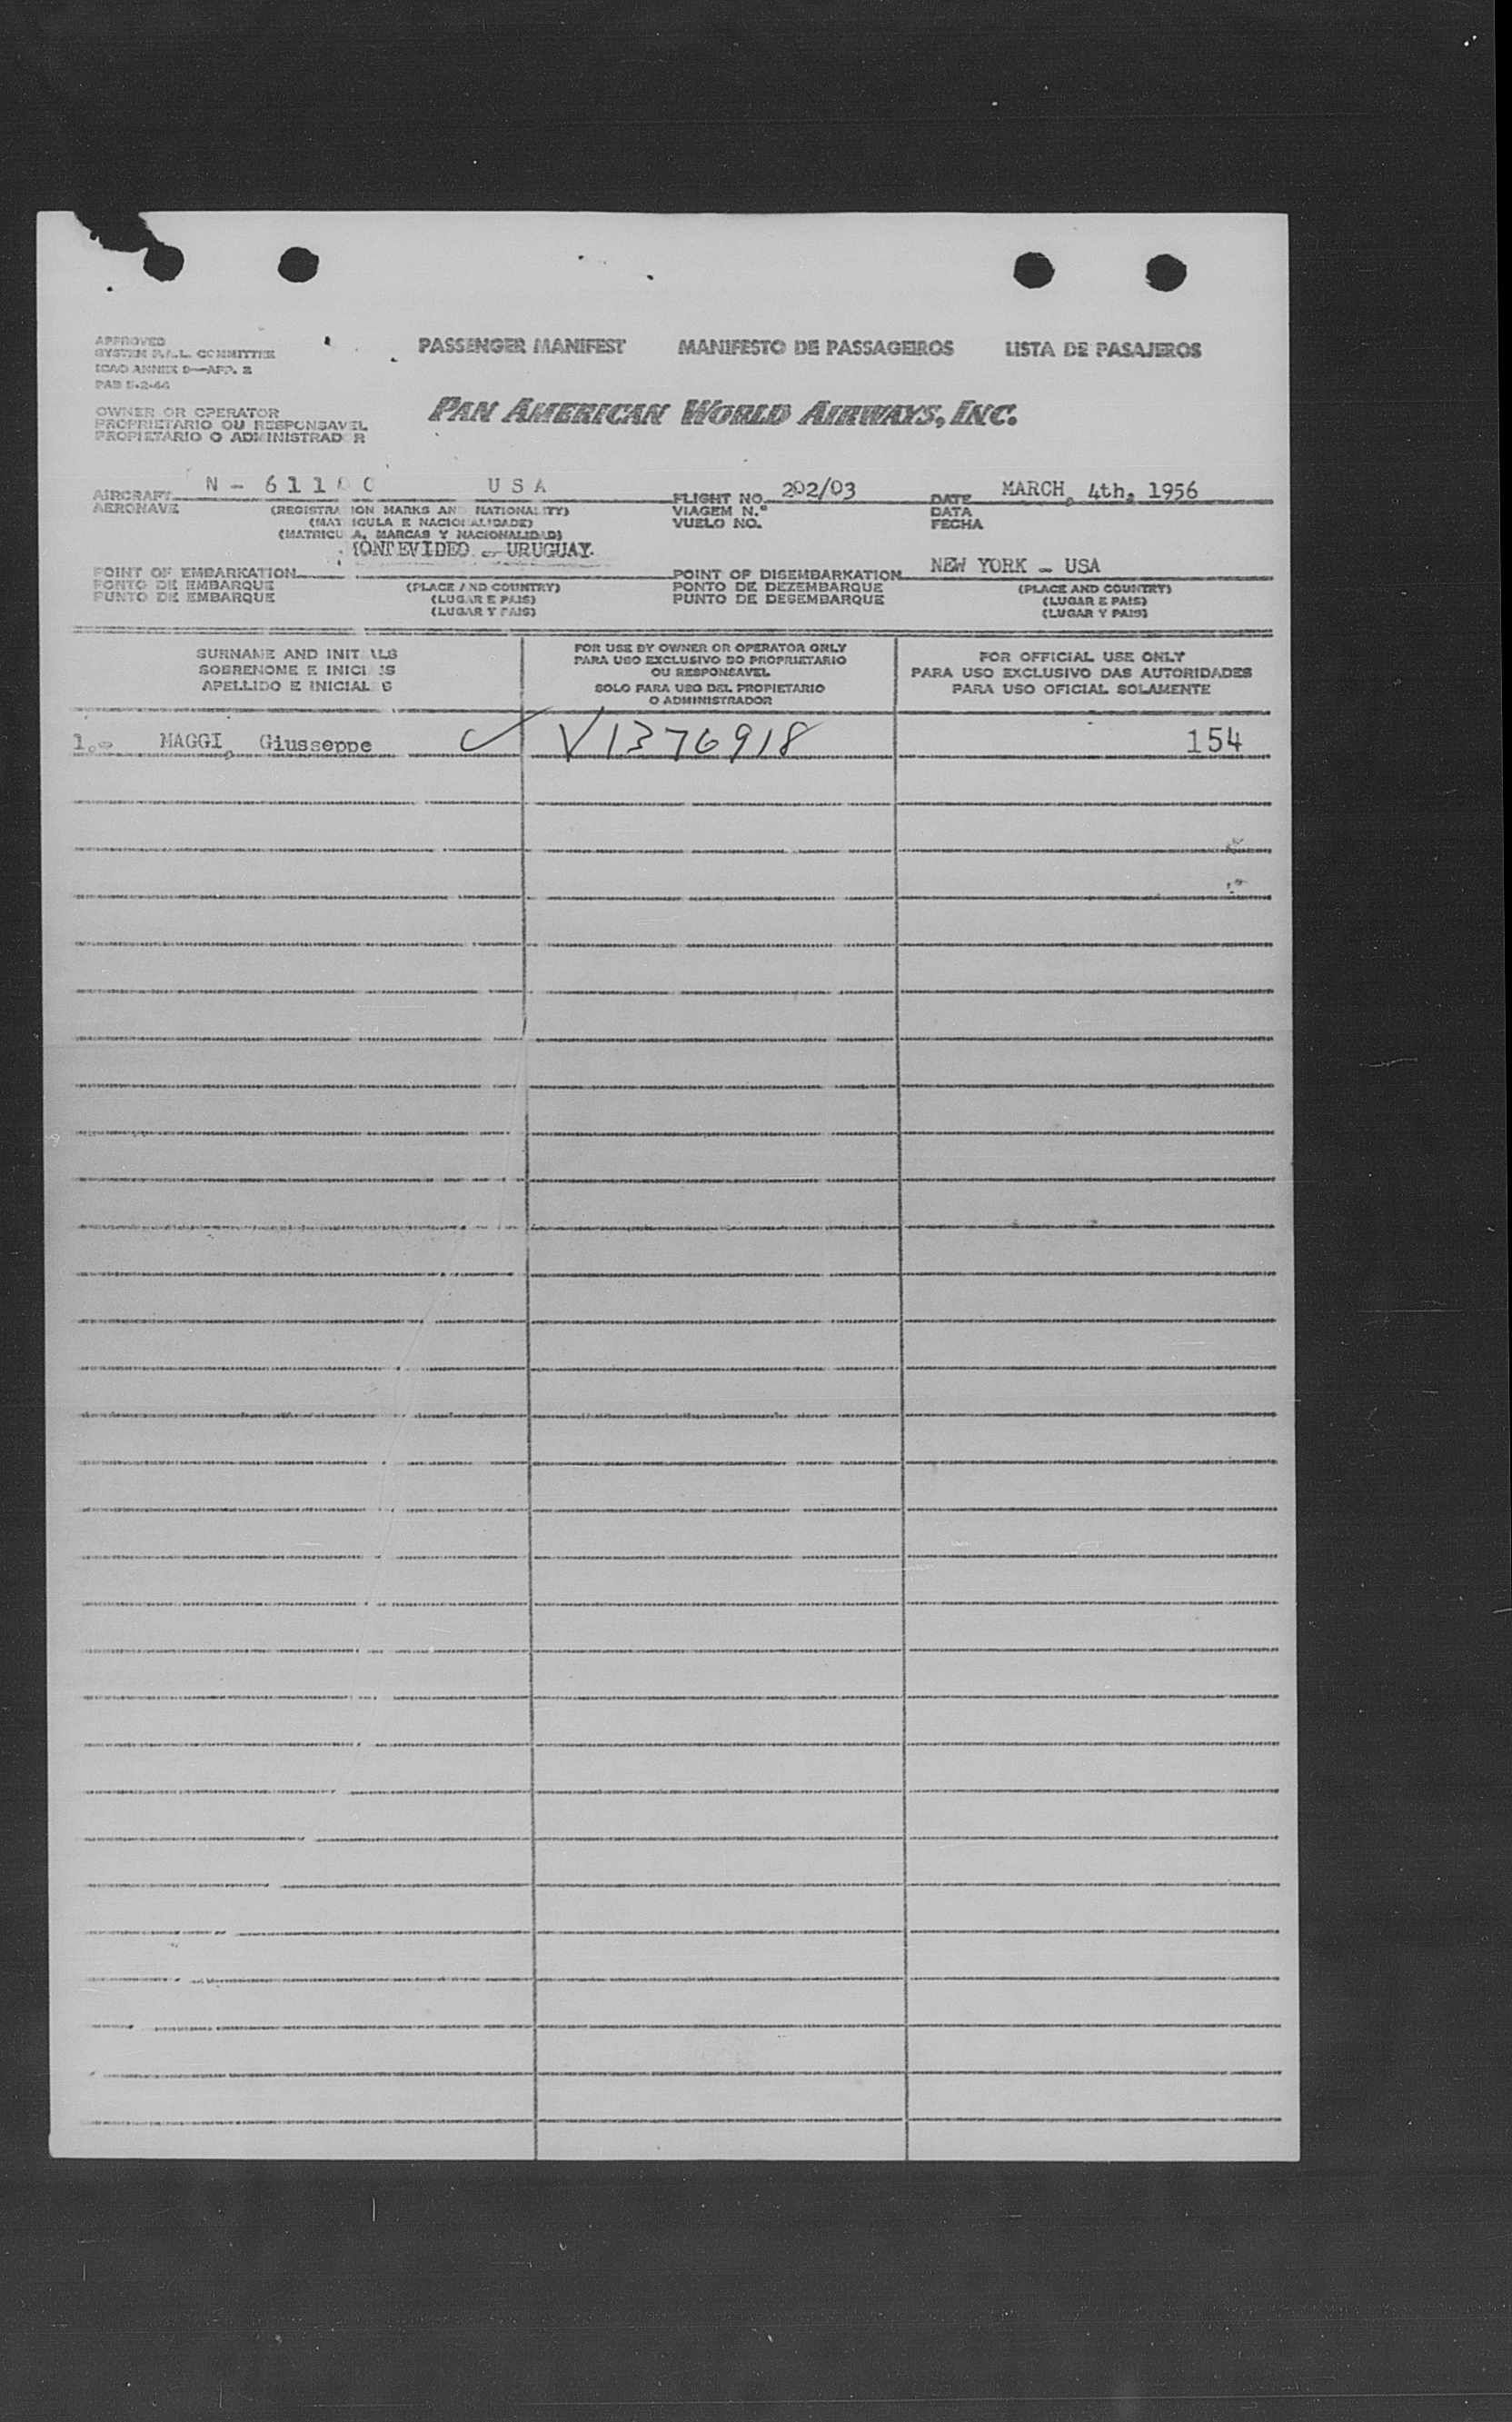 APPROVED
SYSTEM F.A.L. COMMITTEE
ICAO ANNEX 9—APP. 2
PASSENGER MANIFEST MANIFESTO DE PASSAGEIROS LISTA DE PASAJEROS
OWNER OR OPERATOR
PROPRIETARIO OU RESPONSAVEL
PROPIETARIO O ADMINISTRAD R
PAN AMERICAN WORLD AIRWAYS, INC.
AIRCRAFT N - U S A FLIGHT NO. 202/03 DATE MARCH, 4th, 1956
AERONAVE (REGISTRA ION MARKS AND NATIONALITY) VIAGEM N.º DATA
(MAT ICULA E NACIONALIDADE) VUELO NO. FECHA
(MATRICU A, MARCAS Y NACIONALIDAD)
MONTEVIDEO - URUGUAY.
POINT OF EMBARKATION POINT OF DISEMBARKATION NEW YORK - USA
PONTO DE EMBARQUE (PLACE AND COUNTRY) PONTO DE DEZEMBARQUE (PLACE AND COUNTRY)
PUNTO DE EMBARQUE (LUGAR E PAIS) PUNTO DE DESEMBARQUE (LUGAR E PAIS)
(LUGAR Y PAIS) (LUGAR Y PAIS)
SURNAME AND INITIALS
SOBRENOME E INICIAIS
APELLIDO E INICIALES
FOR USE BY OWNER OR OPERATOR ONLY
PARA USO EXCLUSIVO DO PROPRIETARIO
OU RESPONSAVEL
SOLO PARA USO DEL PROPIETARIO
O ADMINISTRADOR
FOR OFFICIAL USE ONLY
PARA USO EXCLUSIVO DAS AUTORIDADES
PARA USO OFICIAL SOLAMENTE
1.- MAGGI, Giusseppe V1376918 154